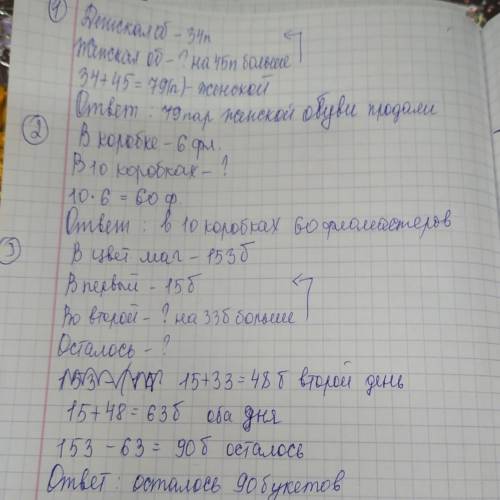 1
Детская об - 34п
Женская об - ? на 45п больше
34+45=79(п) - женской
Ответ: 79 пар женской обуви продали
2
В коробке - 6 фл.
В 10 коробках - ?
10·6=60ф.
Ответ: в 10 коробках 60 фломастеров
3
В цвет маг - 153б
В первый - 15б
Во второй - ? на 33б больше
Осталось - ?
15+33=48б второй день
15+48=63б оба дня
153-63=90б осталось
Ответ: осталось 90 букетов